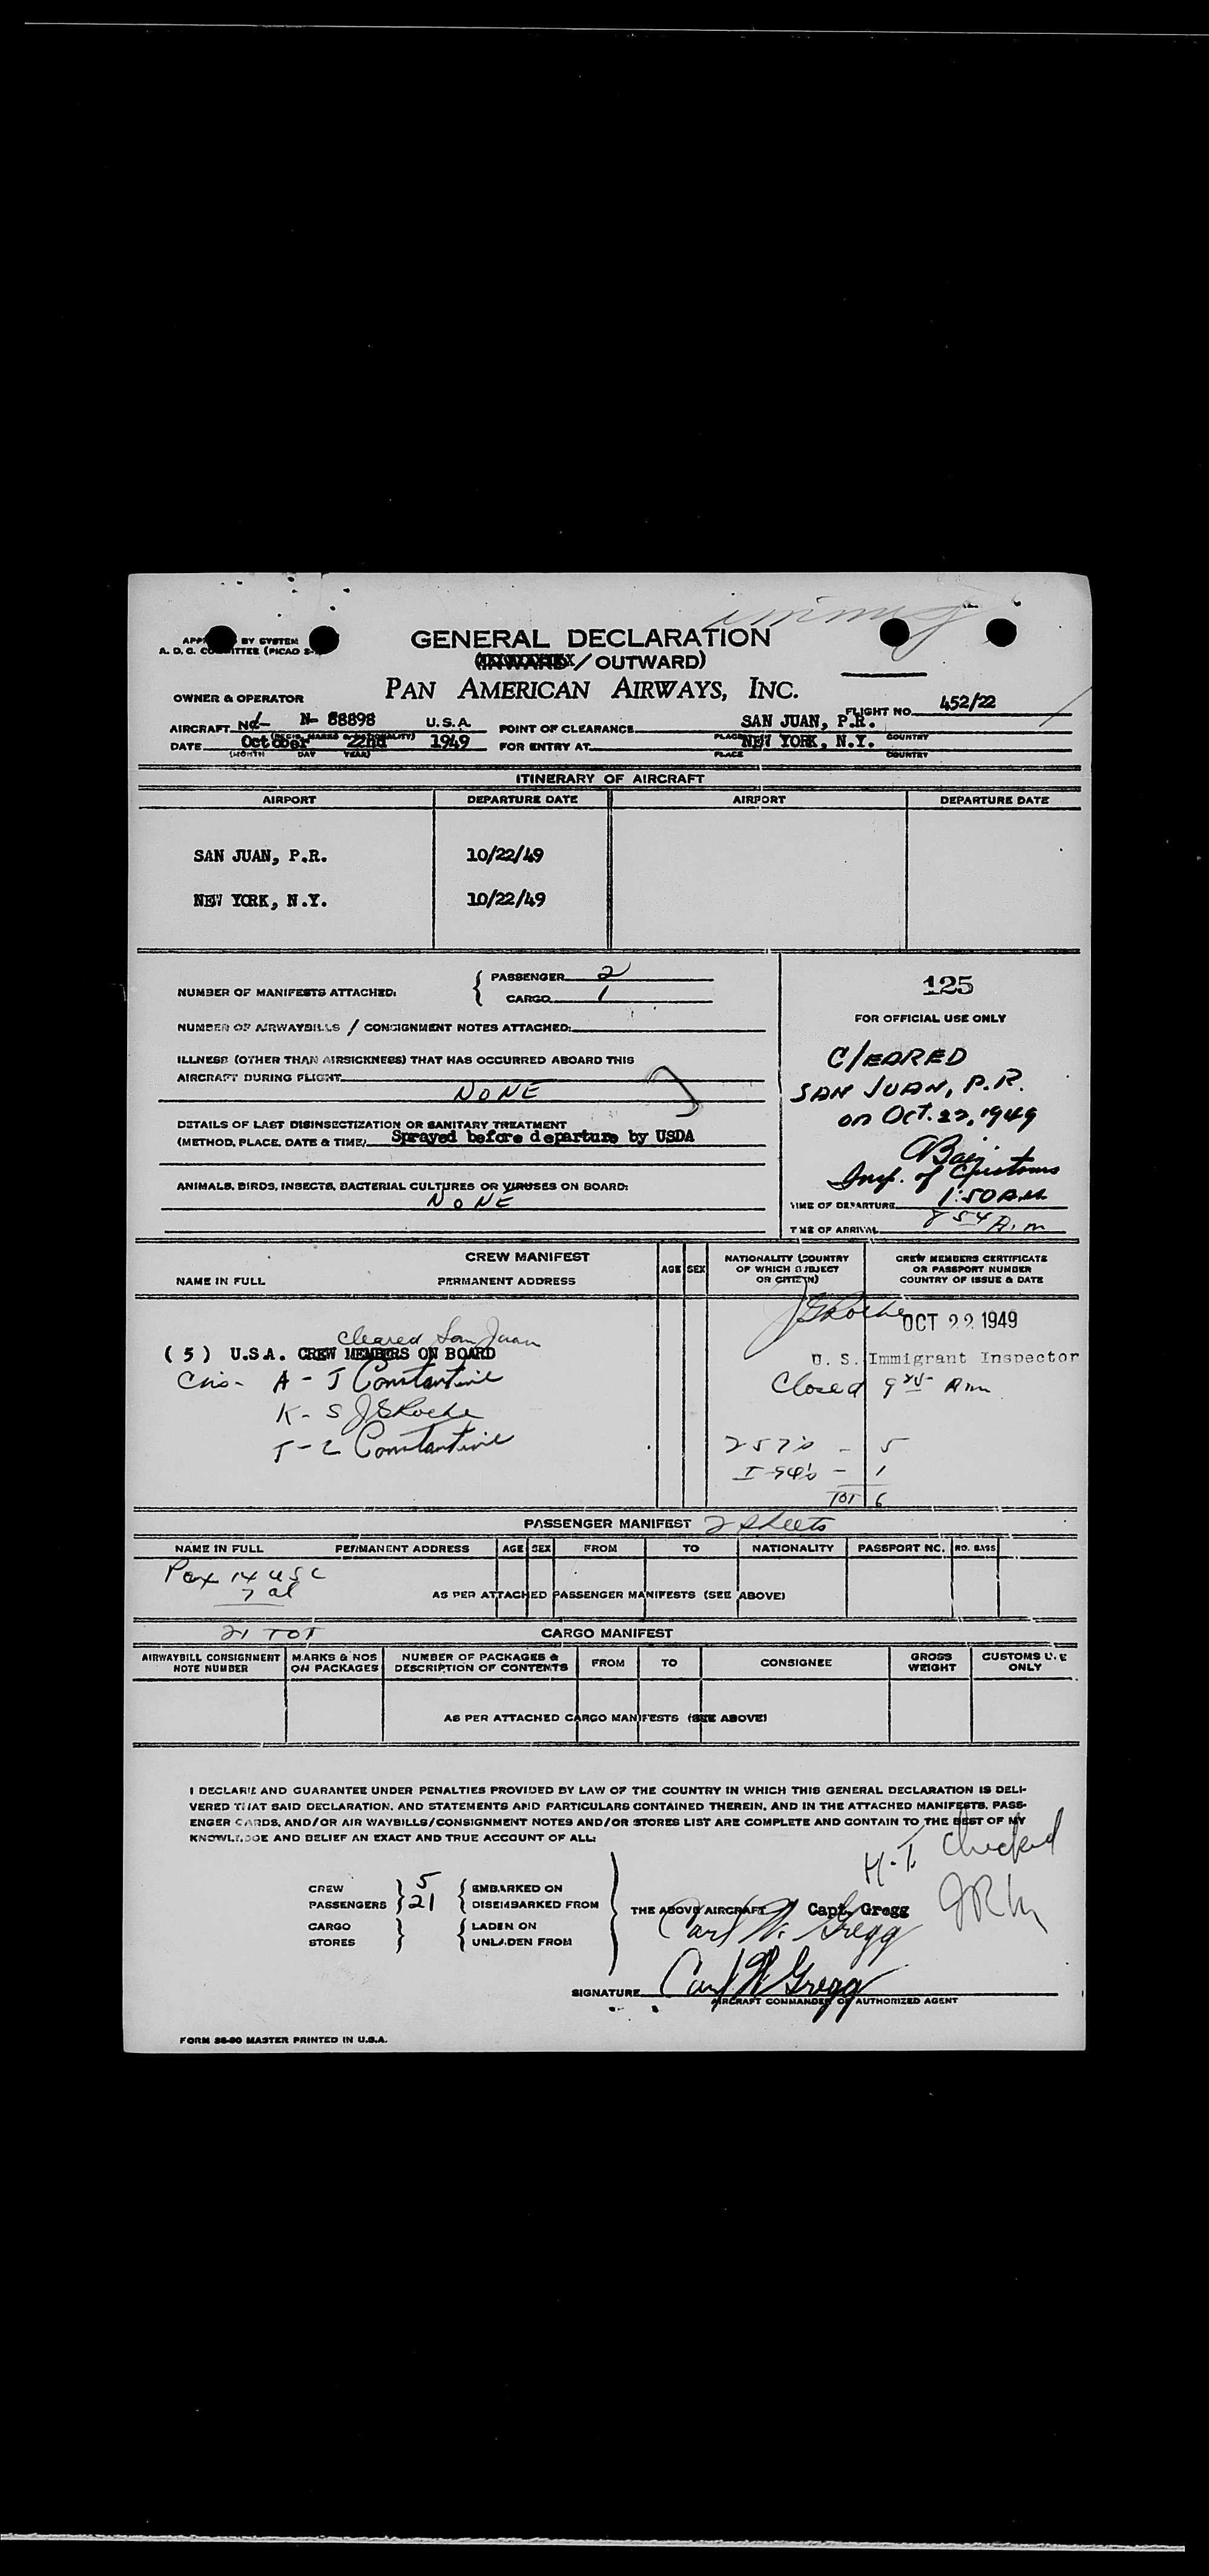 Immig
APP BY SYSTEM
A. D. C. COMMITTEE (PICAO
GENERAL DECLARATION
(INWARD / OUTWARD)
PAN AMERICAN AIRWAYS, INC.
OWNER & OPERATOR
FLIGHT NO. 452/22
AIRCRAFT N- 88898 U.S.A. POINT OF CLEARANCE SAN JUAN, P.R.
(REGIS. MARKS & NATIONALITY) PLACE COUNTRY
DATE October 22nd 1949 FOR ENTRY AT NEW YORK, N.Y.
(MONTH DAY YEAR) PLACE COUNTRY
ITINERARY OF AIRCRAFT
AIRPORT DEPARTURE DATE AIRPORT DEPARTURE DATE
SAN JUAN, P.R. 10/22/49
NEW YORK, N.Y. 10/22/49
NUMBER OF MANIFESTS ATTACHED: { PASSENGER 2
CARGO 1
NUMBER OF AIRWAYBILLS / CONSIGNMENT NOTES ATTACHED:
ILLNESS (OTHER THAN AIRSICKNESS) THAT HAS OCCURRED ABOARD THIS
AIRCRAFT DURING FLIGHT
NONE
DETAILS OF LAST DISINSECTIZATION OR SANITARY TREATMENT
(METHOD, PLACE, DATE & TIME) Sprayed before departure by USDA
ANIMALS, BIRDS, INSECTS, BACTERIAL CULTURES OR VIRUSES ON BOARD:
NONE
125
FOR OFFICIAL USE ONLY
CLEARED
SAN JUAN, P.R.
on Oct. 22, 1949
Bain
Insp. of Customs
TIME OF DEPARTURE 1:50 A.M.
TIME OF ARRIVAL 8 54 A.m
CREW MANIFEST
NAME IN FULL PERMANENT ADDRESS AGE SEX NATIONALITY (COUNTRY OF WHICH SUBJECT OR CITIZEN) CREW MEMBERS CERTIFICATE OR PASSPORT NUMBER COUNTRY OF ISSUE & DATE
JGRoche OCT 22 1949
Cleared San Juan
( 5 ) U.S.A. CREW MEMBERS ON BOARD
U. S. Immigrant Inspector
A - J Constantine
Closed 9 Am
K - S JGRoche
T - L Constantine
257's - 5
I-94's - 1
TOT 6
PASSENGER MANIFEST 2 sheets
NAME IN FULL PERMANENT ADDRESS AGE SEX FROM TO NATIONALITY PASSPORT NO. NO. BAGS
Pax 14 USC
7 al
AS PER ATTACHED PASSENGER MANIFESTS (SEE ABOVE)
21 TOT
CARGO MANIFEST
AIRWAYBILL CONSIGNMENT NOTE NUMBER MARKS & NOS ON PACKAGES NUMBER OF PACKAGES & DESCRIPTION OF CONTENTS FROM TO CONSIGNEE GROSS WEIGHT CUSTOMS USE ONLY
AS PER ATTACHED CARGO MANIFESTS (SEE ABOVE)
I DECLARE AND GUARANTEE UNDER PENALTIES PROVIDED BY LAW OF THE COUNTRY IN WHICH THIS GENERAL DECLARATION IS DELI-
VERED THAT SAID DECLARATION, AND STATEMENTS AND PARTICULARS CONTAINED THEREIN, AND IN THE ATTACHED MANIFESTS, PASS-
ENGER CARDS, AND/OR AIR WAYBILLS/CONSIGNMENT NOTES AND/OR STORES LIST ARE COMPLETE AND CONTAIN TO THE BEST OF MY
KNOWLEDGE AND BELIEF AN EXACT AND TRUE ACCOUNT OF ALL:
H.T. Checked
CREW 5 EMBARKED ON
PASSENGERS 21 DISEMBARKED FROM
THE ABOVE AIRCRAFT Capt. Gregg
CARGO LADEN ON
STORES UNLADEN FROM
Carl W. Gregg
SIGNATURE Carl W Gregg
AIRCRAFT COMMANDER OR AUTHORIZED AGENT
FORM 38-90 MASTER PRINTED IN U.S.A.